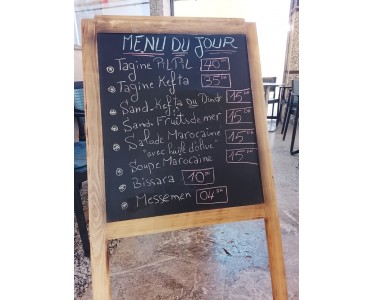 MENU DU JOUR
Tagine PiLPiL 40
Tagine Kefta 35
Sand. Kefta ou Dinde 15
Sand. Fruits de mer 15
Salade Marocaine 15
"avec huile d'olive"
Soupe Marocaine 15
Bissara 10
Messemen 04